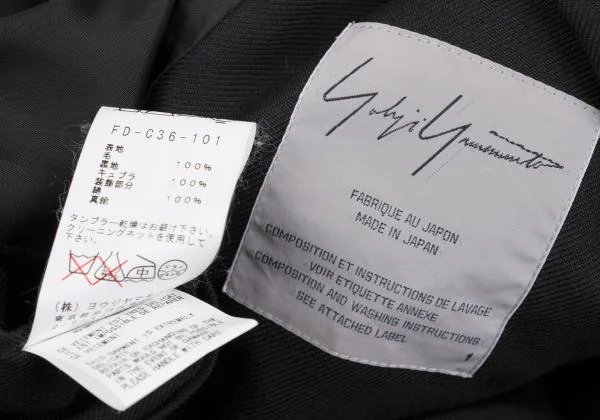 FD-C36-101
表地
毛 100%
裏地
キュプラ 100%
装飾部分
綿 100%
真鍮
タンブラー乾燥はお避け下さい。
クリーニングネットを使用して
下さい。
中
(株) ヨウジヤマ
東京都
CE VETEMENT
THIS GARMENT IS EXTREMELY
PLEASE HANDLE WITH CARE
Yohji Yamamoto
FABRIQUE AU JAPON
MADE IN JAPAN
COMPOSITION ET INSTRUCTIONS DE LAVAGE
VOIR ETIQUETTE ANNEXE
COMPOSITION AND WASHING INSTRUCTIONS
SEE ATTACHED LABEL
1